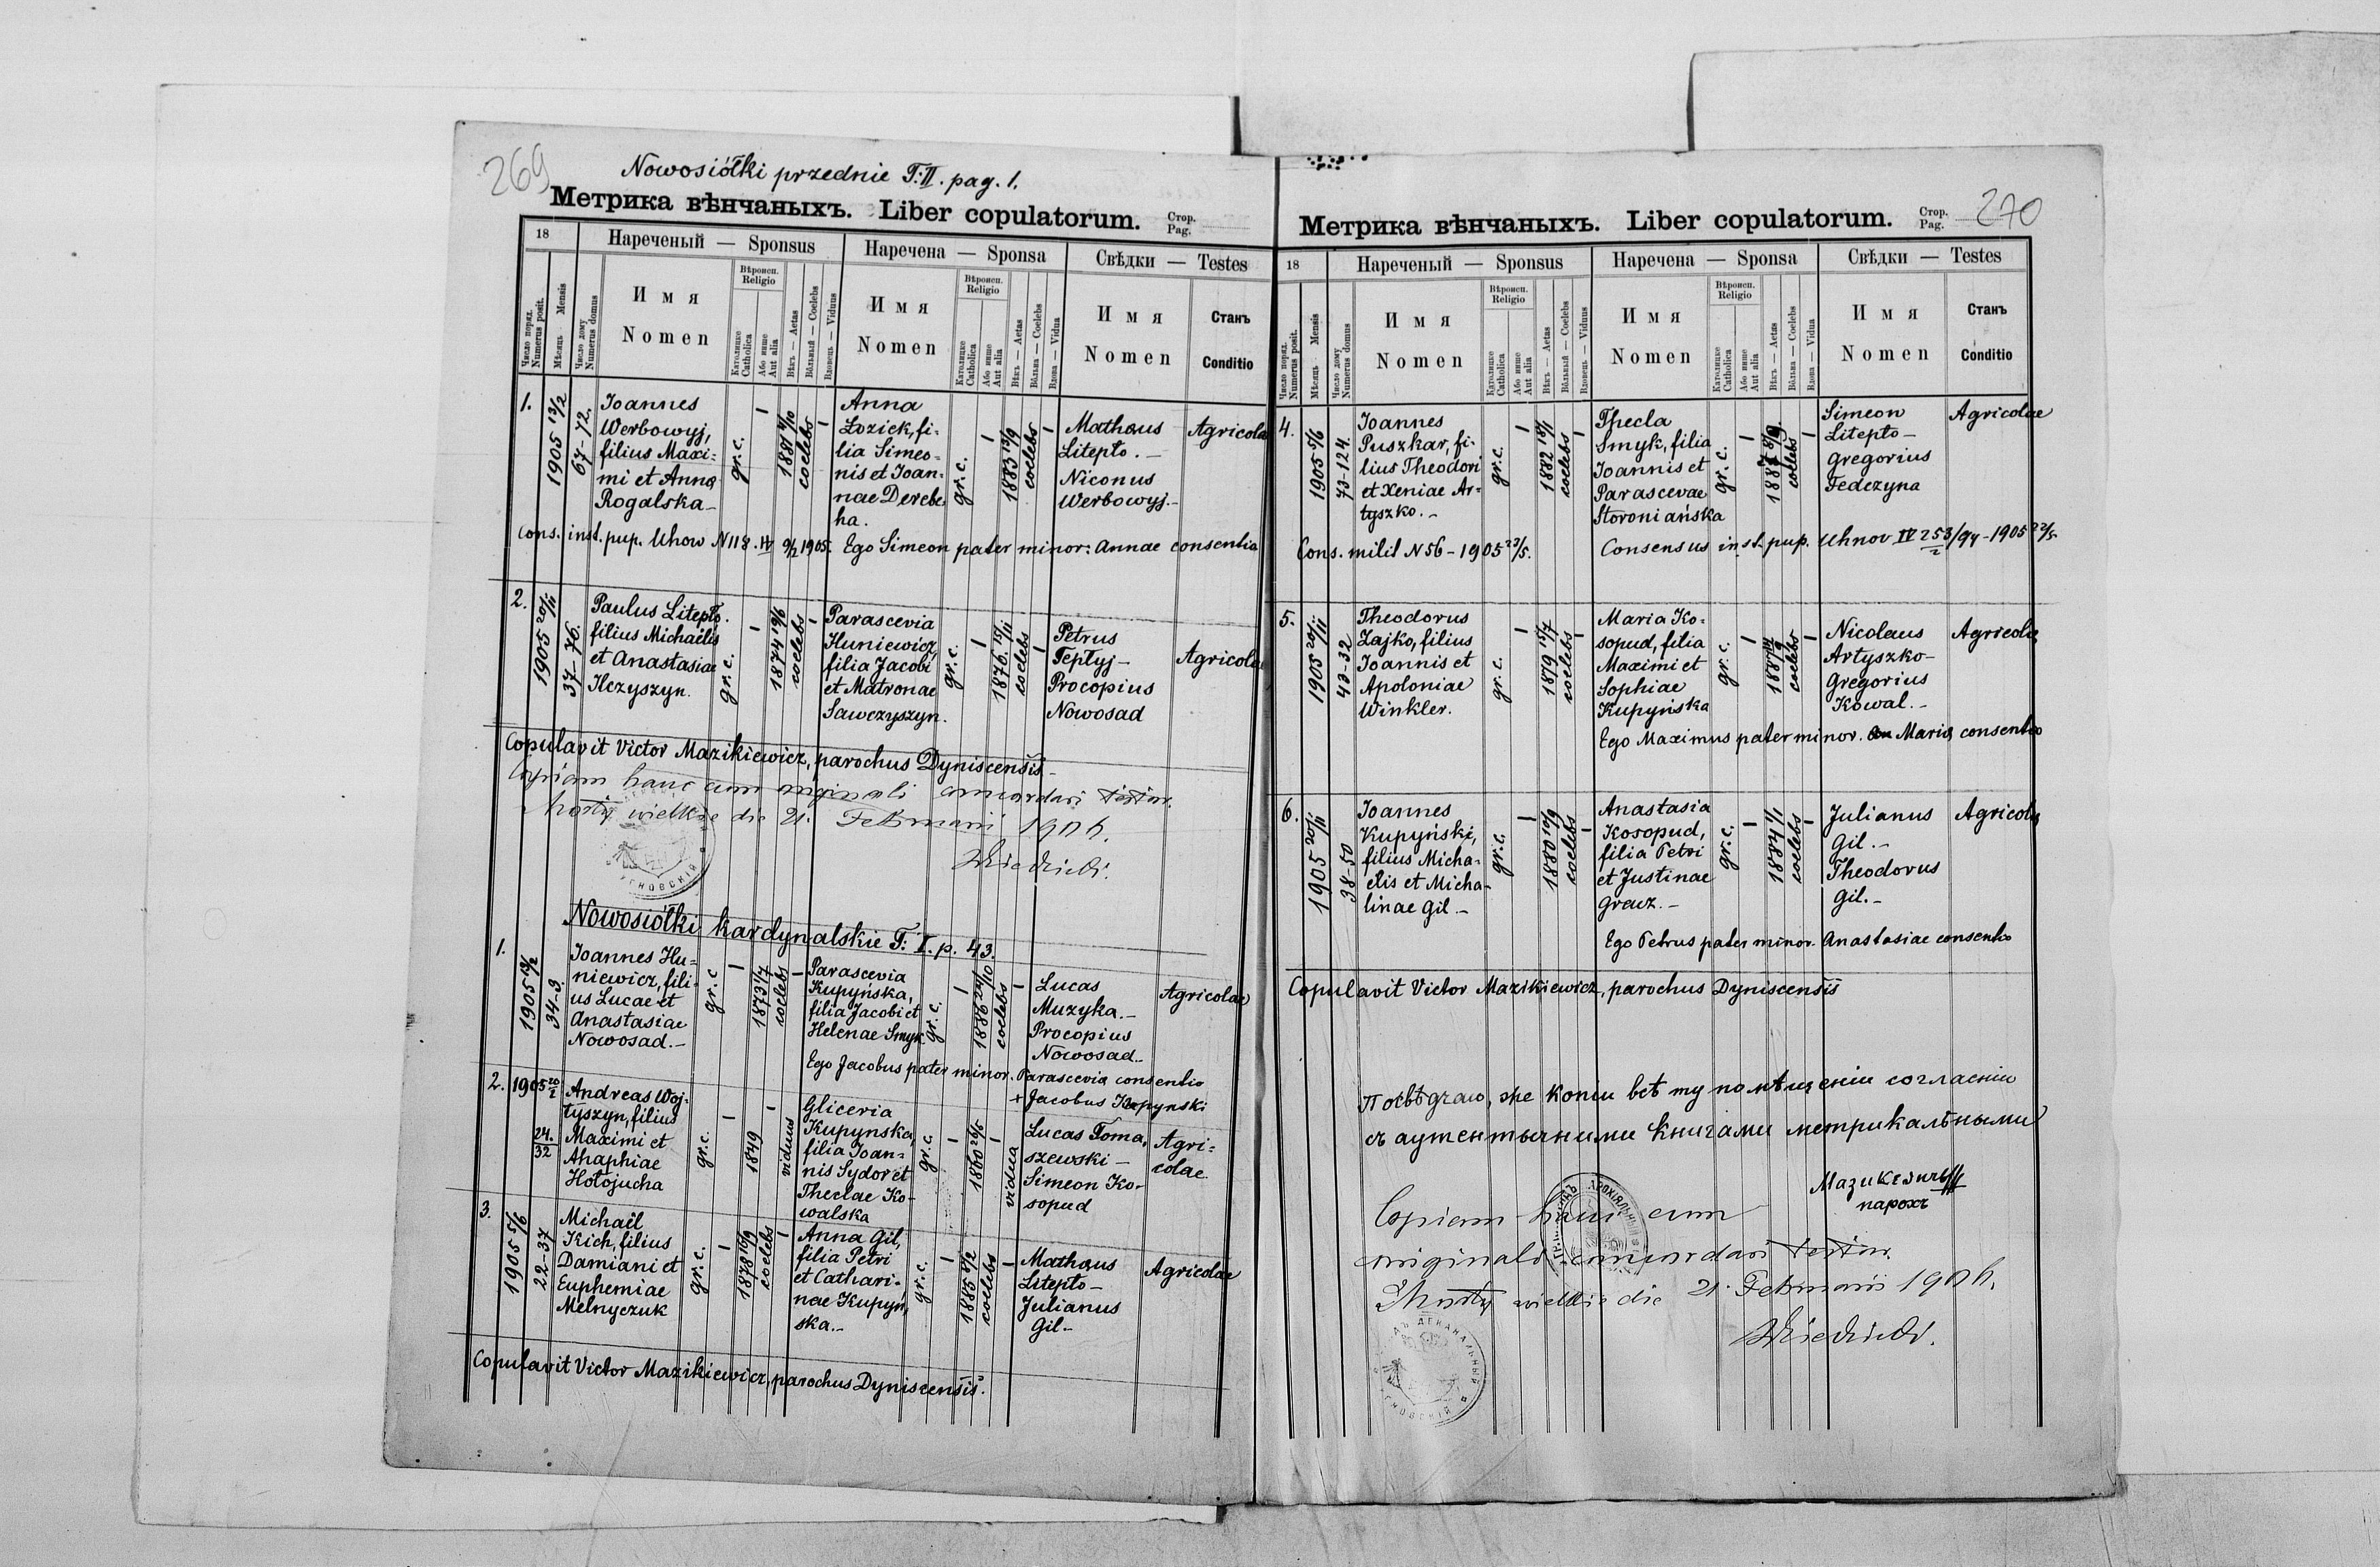 269
Nowosiółki przednie T: II. pag. 1.
Метрика вѣнчаныхъ. Liber copulatorum. Стор. Pag.
18
Нареченый — Sponsus
Наречена — Sponsa
Свѣдки — Testes
Число поряд. Numerus posit.
Мѣсяць Mensis
Число дому Numerus domus
Имя Nomen
Вѣроисп. Religio
Католицке Catholica
Або инше Aut alia
Вѣкъ — Aetas
Вôльный — Coelebs
Вдовець — Viduus
Имя Nomen
Вѣроисп. Religio
Католицке Catholica
Або инше Aut alia
Вѣкъ — Aetas
Вôльна — Coelebs
Вдова — Vidua
Имя Nomen
Станъ Conditio
1.
1905 13/2
67-72.
Joannes
Werbowyj,
filius Maxi-
mi et Anna
Rogalska
gr. c.
coelebs
Anna
Łozick, fi-
lia Simeo-
nis et Joan-
nae Derebe-
ha.
gr. c.
1883 13/9
coelebs
Mathaus
Litepło.
Niconus
Werbowyj.
Agricolae
Cons. inst. pup. Uhow N 118. IV 9/2 1905. Ego Simeon pater minor: Annae consentio
2.
1905 20/11
37-76.
Paulus Litepło.
filius Michaëlis
et Anastasiae
Ilczyszyn.
gr. c.
1874 19/6
coelebs
Parascevia
Huniewicz
filia Jacobi
et Matronae
Sawczyszyn.
gr. c.
1876. 15/11
coelebs
Petrus
Tepłyj
Procopius
Nowosad
Agricolae
Copulavit Victor Mazikiewicz, parochus Dyniscensis
Copiam hanc cum originali concordari testor.
Mosty wielkie die 21. Februarii 1906.
Nowosiółki kardynalskie T: I. p. 43.
1.
1905 13/2
34-9.
Joannes Hu-
niewicz, fili-
us Lucae et
Anastasiae
Nowosad.
gr. c
1873 1/7
coelebs
Parascevia
Kupyńska,
filia Jacobi et
Helenae Smyk
gr. c.
1886 24/10
coelebs
Lucas
Muzyka.
Procopius
Nowosad.
Agricolae
Ego Jacobus pater minor. Parascevia consentio
+ Jacobus Kupynski
2.
1905 20/2
24. 32
Andreas Woj-
tyszyn, filius
Maximi et
Ahaphiae
Hołojucha
gr. c.
1849
viduus
Gliceria
Kupynska,
filia Joan-
nis Sydor et
Theclae Ko-
walska
gr. c.
1860 26/5
vidua
Lucas Toma-
szewski
Simeon Ko-
sopud
Agri-
colae
3.
1905 5/6
22-37
Michaël
Kich, filius
Damiani et
Euphemiae
Melnyczuk
gr. c.
1878 16/9
coelebs
Anna Gil,
filia Petri
et Cathari-
nae Kupyń-
ska.
gr. c.
1885 8/2
coelebs
Mathaus
Litepło
Julianus
Gil.
Agricolae
Copulavit Victor Mazikiewicz, parochus Dyniscensis.
270
Метрика вѣнчаныхъ. Liber copulatorum. Стор. Pag.
18
Нареченый — Sponsus
Наречена — Sponsa
Свѣдки — Testes
Число поряд. Numerus posit.
Мѣсяць Mensis
Число дому Numerus domus
Имя Nomen
Вѣроисп. Religio
Католицке Catholica
Або инше Aut alia
Вѣкъ — Aetas
Вôльный — Coelebs
Вдовець — Viduus
Имя Nomen
Вѣроисп. Religio
Католицке Catholica
Або инше Aut alia
Вѣкъ — Aetas
Вôльна — Coelebs
Вдова — Vidua
Имя Nomen
Станъ Conditio
4.
1905 5/6
73-124.
Joannes
Puszkar, fi-
lius Theodori
et Xeniae Ar-
tyszko.
gr. c.
1882 18/1
coelebs
Thecla
Smyk, filia
Joannis et
Parascevae
Storoniańska
gr. c.
coelebs
Simeon
Litepło
Gregorius
Fedczyna
Agricolae
Cons. milit N 56 - 1905 23/5.
Consensus inst. pup. Uhnov IV 253/2 /94 - 1905 22/5.
5.
1905 20/11
43-32
Theodorus
Zajko, filius
Joannis et
Apoloniae
Winkler.
gr. c.
1879 15/7
coelebs
Maria Ko-
sopud, filia
Maximi et
Sophiae
Kupyńska
gr. c.
coelebs
Nicolaus
Artyszko
Gregorius
Kowal.
Agricolae
Ego Maximus pater minor. Maria consentio
6.
1905 20/11
38-50
Joannes
Kupyński,
filius Micha-
elis et Micha-
linae Gil.
gr. c.
1880 10/9
coelebs
Anastasia
Kosopud,
filia Petri
et Justinae
Grauz.
gr. c.
1884 1/1
coelebs
Julianus
Gil.
Theodorus
Gil.
Agricolae
Ego Petrus pater minor. Anastasiae consentio
Copulavit Victor Mazikiewicz, parochus Dyniscensis
Посвѣдчаю, же копіи всѣ ту помѣщеніи согласніи
съ аутентычными книгами метрикальными
Мазикевичъ
парохъ
Copiam hanc cum
originali concordari testor.
Mosty wielkie die 21. Februarii 1906.